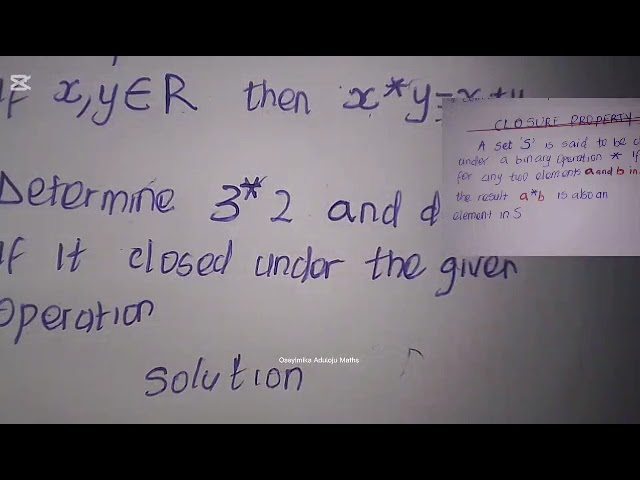 If x, y ∈ R then x*y = x+y
Determine 3*2 and d
If it closed under the given
operation
solution
CLOSURE PROPERTY
A set 'S' is said to be
under a binary operation * if
for any two elements a and b in
the result a*b is also an
element in S
Oseyimika Aduloju Maths